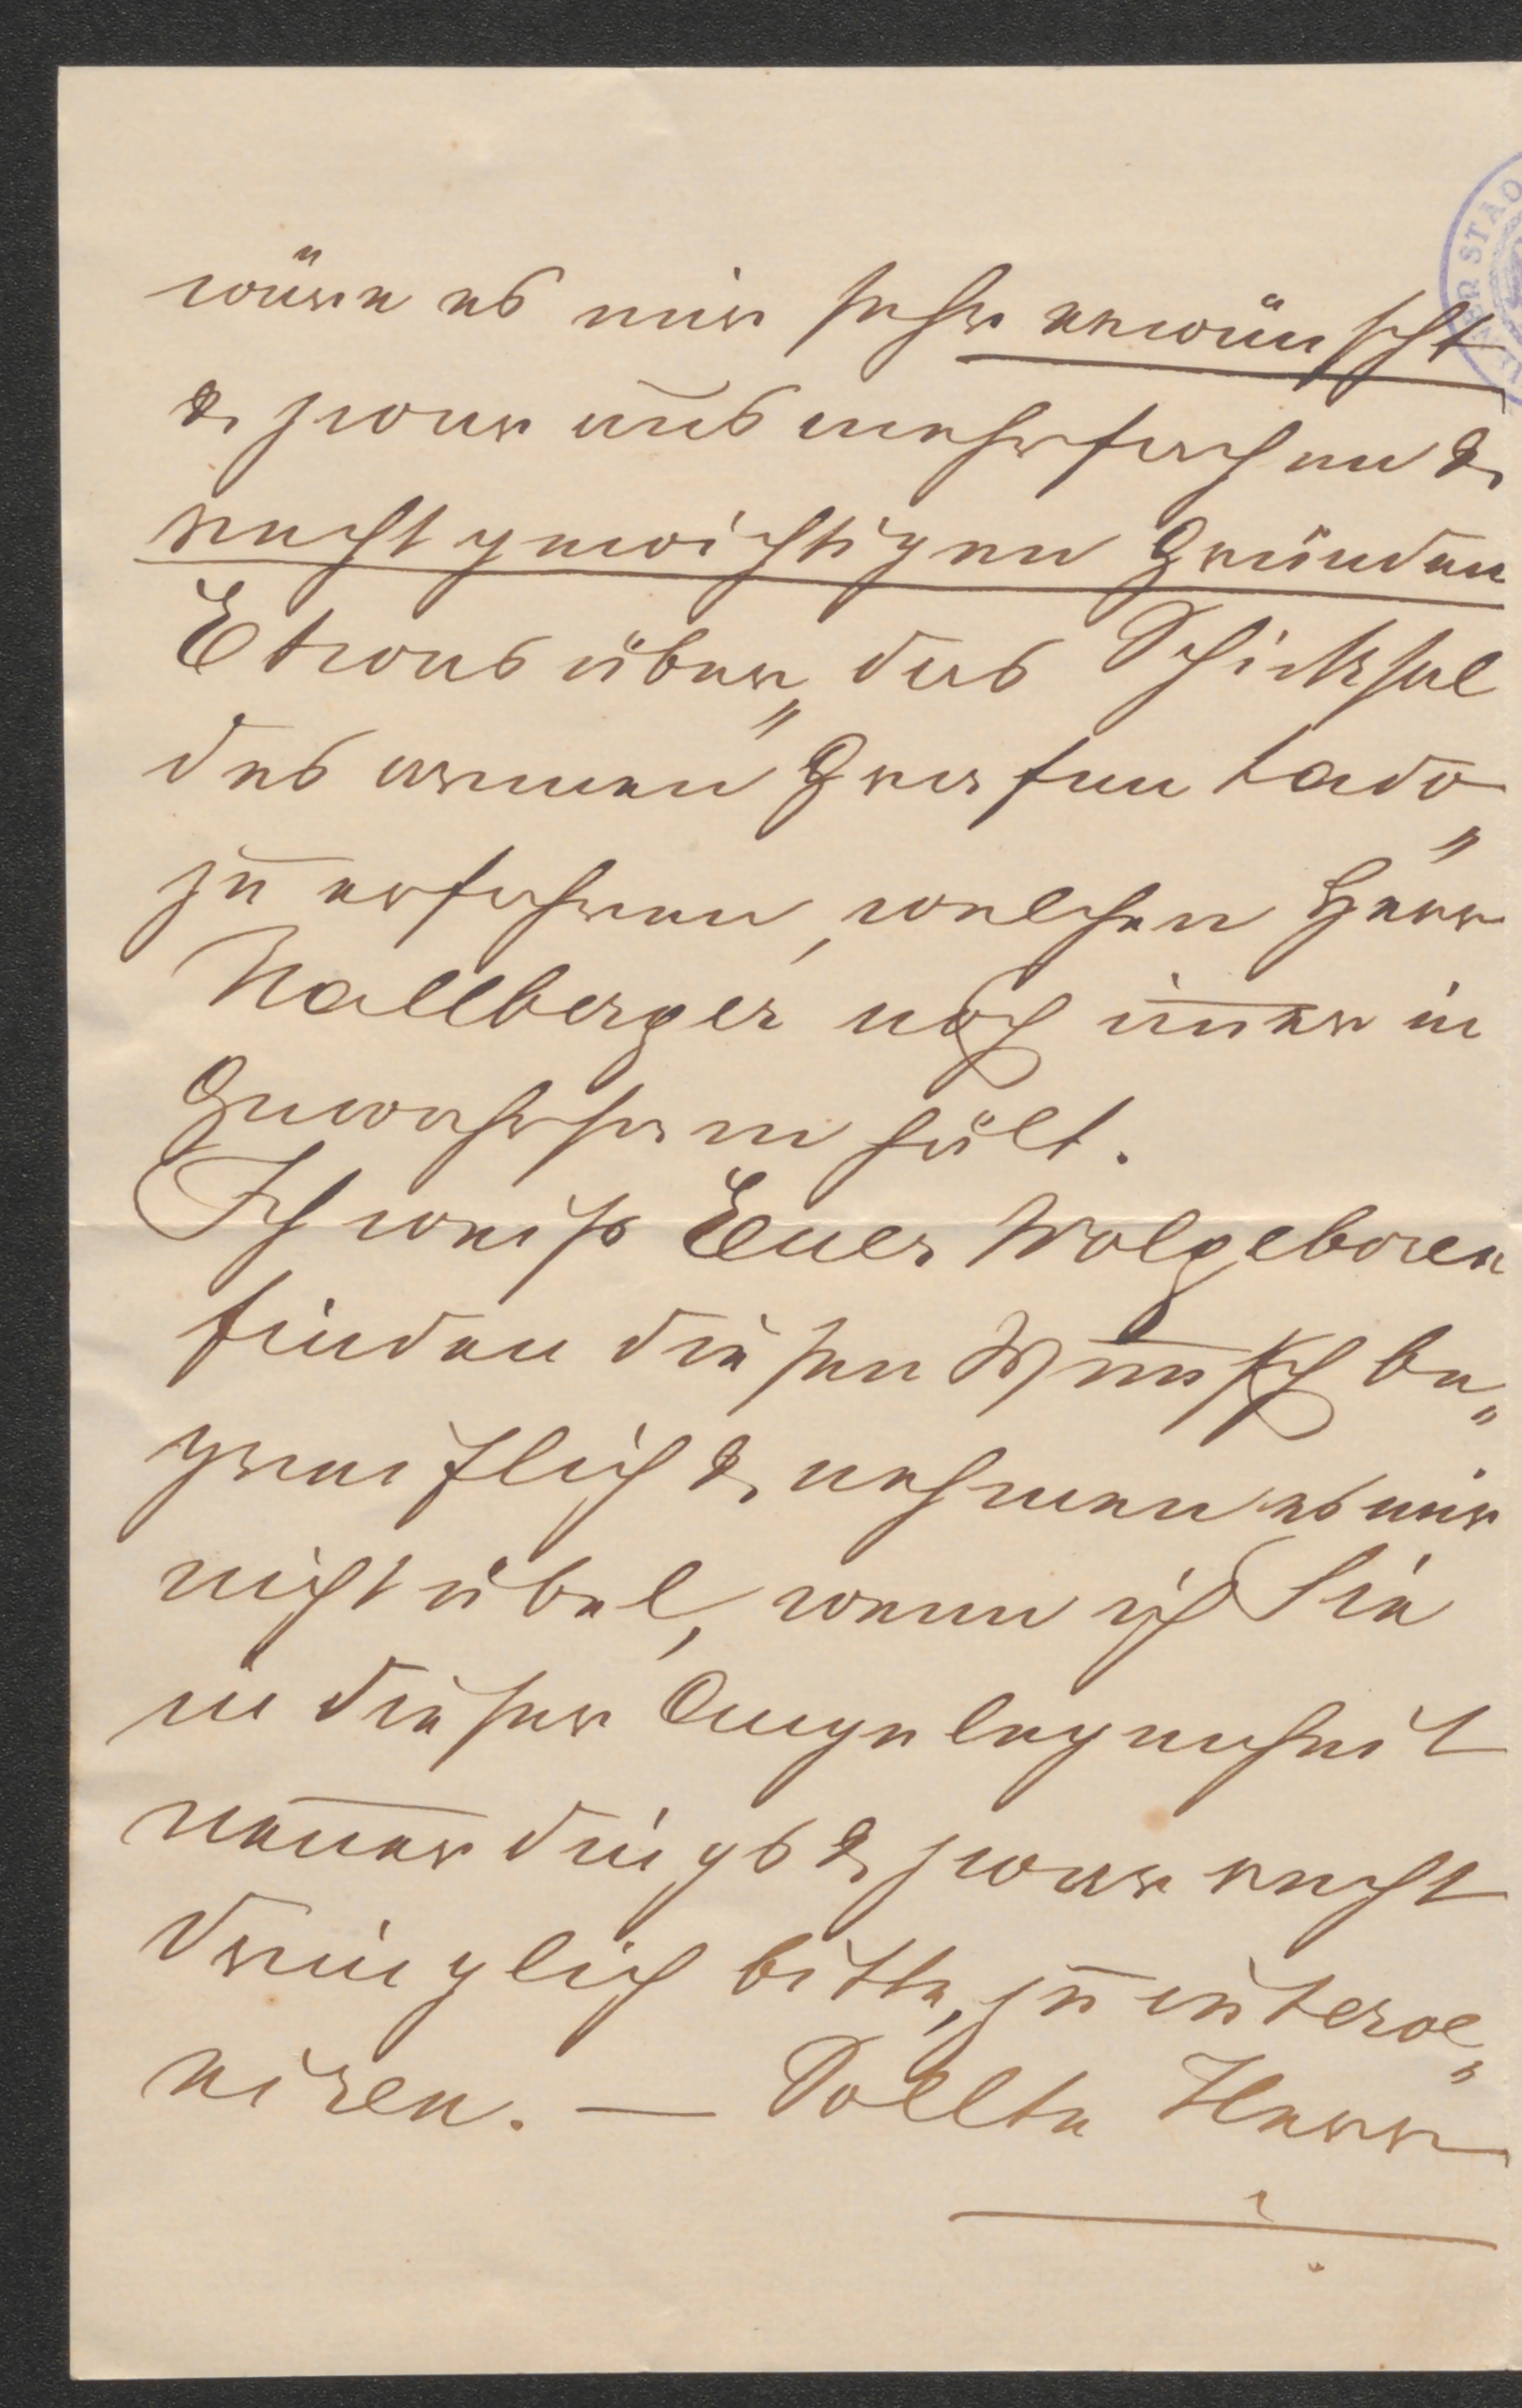 wäre es mir sehr erwünscht
& zwar aus mehrfachen &
recht gewichtigen Gründen
Etwas über „das Schicksal
des armen Grafen Lado"
zu erfahren, welchen Herr
Hallberger noch im̅er in
Gewahrsam hält.
Ich weiß Euer Wolgeboren
finden diesen Wunsch be„
greiflich & nehmen es mir
nicht übel, wenn ich Sie
in dieser Angelegenheit
neuerdings & zwar recht
dringlich bitte, zu interve„
niren. — Sollte Herr